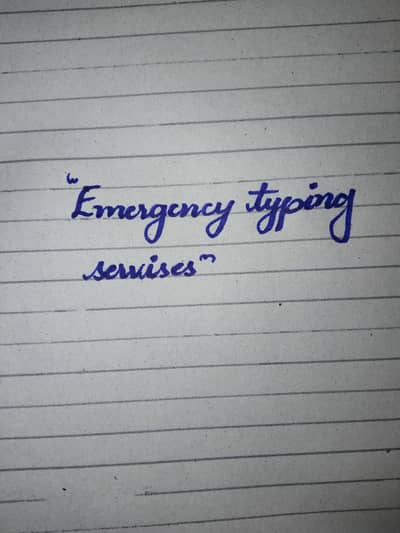 "Emergency typing
servises"